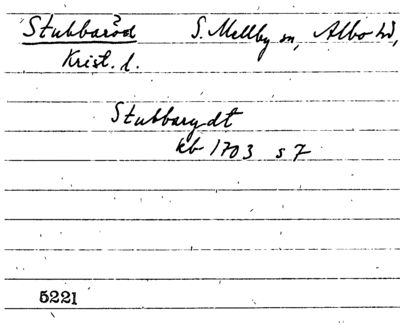 Stubbaröd S. Mellby sn, Albo hd,
Krist. l.
Stubbarydt
kb 1703 s 7
5221